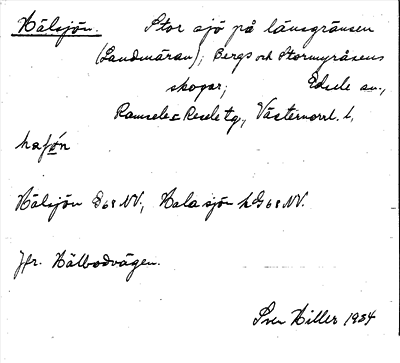 Hälsjön. Stor sjö på länsgränsen
(Landmären), Bergs och Stormyråsens
skogar; Edsele sn.,
Ramsele o Resele tg, Västernorrl. l,
Hälsjön 68 NV; Hala sjön 68 NV.
Jfr. Hälbodvägen.
Sven Hiller 1934